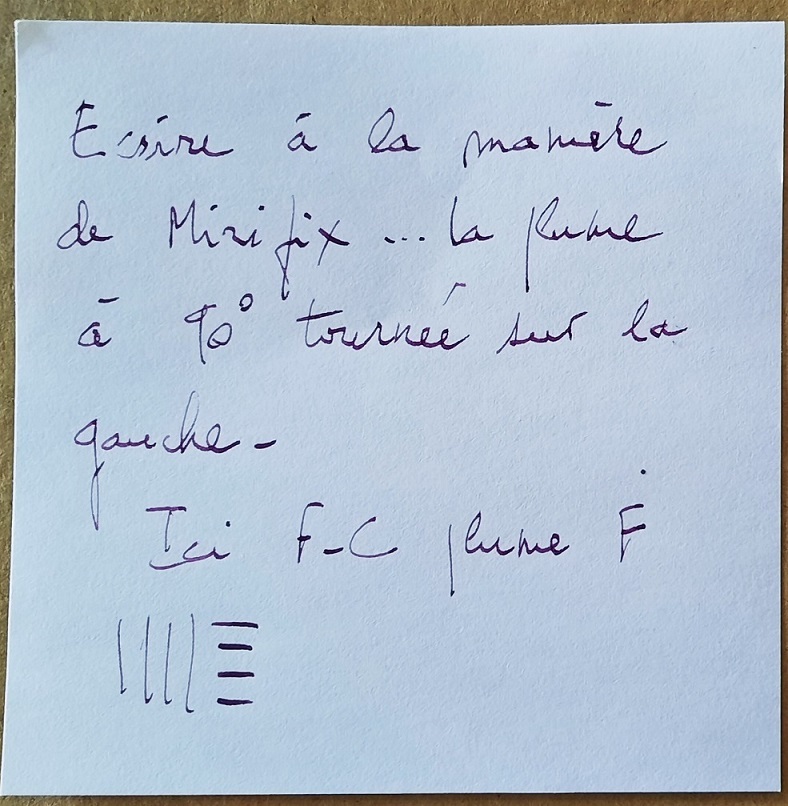 Ecrire à la manière
de Mirifix ... la plume
à 90° tournée sur la
gauche -
Ici F-C plume F